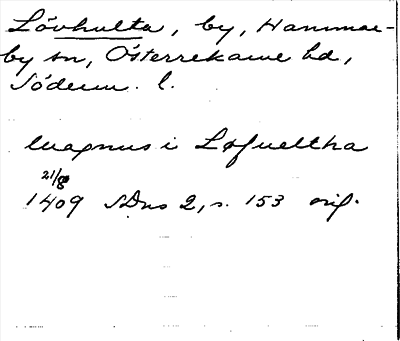 Lövhulta, by, Hammar-
by sn, Österrekarne hd,
Söderm. l.
Magnus i Løfueltha
21/8
1409 SDns 2, s. 153 orig.